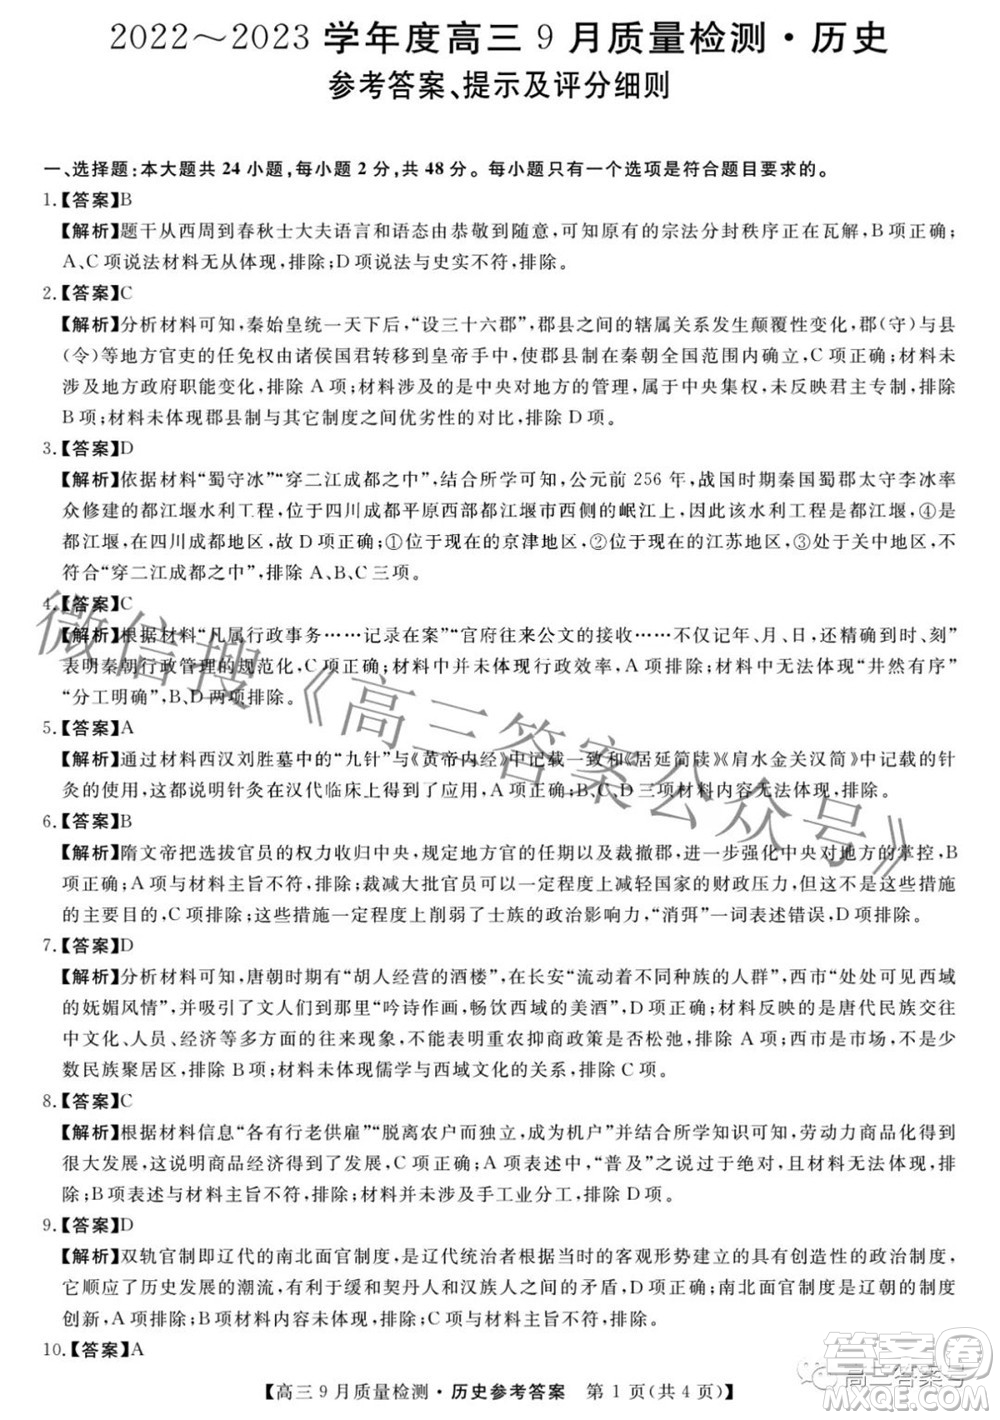 2022～2023 学年度高三 9 月质量检测·历史
参考答案、提示及评分细则
一、选择题:本大题共 24 小题,每小题 2 分,共 48 分。每小题只有一个选项是符合题目要求的。
1.【答案】B
【解析】题干从西周到春秋士大夫语言和语态由恭敬到随意,可知原有的宗法分封秩序正在瓦解,B 项正确;
A、C 项说法材料无从体现,排除;D 项说法与史实不符,排除。
2.【答案】C
【解析】分析材料可知,秦始皇统一天下后,“设三十六郡”,郡县之间的辖属关系发生颠覆性变化,郡(守)与县
(令)等地方官吏的任免权由诸侯国君转移到皇帝手中,使郡县制在秦朝全国范围内确立,C 项正确;材料未
涉及地方政府职能变化,排除 A 项;材料涉及的是中央对地方的管理,属于中央集权,未反映君主专制,排除
B 项;材料未体现郡县制与其它制度之间优劣性的对比,排除 D 项。
3.【答案】D
【解析】依据材料“蜀守冰”“穿二江成都之中”,结合所学知识可知,公元前 256 年,战国时期秦国蜀郡太守李冰率
众修建的都江堰水利工程,位于四川成都平原西部都江堰市西侧的岷江上,因此该水利工程是都江堰,④是
都江堰,在四川成都地区,故 D 项正确;①位于现在的京津地区,②位于现在的江苏地区,③处于关中地区,不
符合“穿二江成都之中”,排除 A、B、C 三项。
4.【答案】C
【解析】根据材料“凡属行政事务……记录在案”“官府往来公文的接收……不仅记年、月、日,还精确到时、刻”
表明秦朝行政管理的规范化,C 项正确;材料中并未体现行政效率,A 项排除;材料中无法体现“井然有序”
“分工明确”,B、D 两项排除。
5.【答案】A
【解析】通过材料西汉刘胜墓中的“九针”与《黄帝内经》中记载一致和《居延简牍》《肩水金关汉简》中记载的针
灸的使用,这都说明针灸在汉代临床上得到了应用,A 项正确;B、C、D 三项材料内容无法体现,排除。
6.【答案】B
【解析】隋文帝把选拔官员的权力收归中央,规定地方官的任期以及裁撤郡,进一步强化中央对地方的掌控,B
项正确;A 项与材料主旨不符,排除;裁减大批官员可以一定程度上减轻国家的财政压力,但不是这些措施
的主要目的,C 项排除;这些措施一定程度上削弱了士族的政治影响力,“消弭”一词表述错误,D 项排除。
7.【答案】D
【解析】分析材料可知,唐朝时期有“胡人经营的酒楼”,在长安“流动着许多异域的人群”,西市“处处可见西域
的妩媚风情”,并吸引了文人们到那里“吟诗作画,畅饮西域的美酒”,D 项正确;材料反映的是唐代民族交往
中文化、人员、经济等多方面的交流,不能体现重农抑商政策是否松弛,排除 A 项;西市是市场,不是少数
民族聚居区,排除 B 项;材料未体现儒学与西域文化的关系,排除 C 项。
8.【答案】C
【解析】根据材料信息“各有行老供雇”“脱离农户而独立,成为机户”并结合所学知识可知,劳动力商品化得到
了一定程度的发展,这说明商品经济得到了发展,C 项正确;A 项表述中,“普及”过于绝对,且材料无法体现,
排除;B 项表述与材料主旨不符,排除;材料并未涉及手工业分工,排除 D 项。
9.【答案】D
【解析】双轨官制即辽代的南北面官制度,是辽代统治者根据当时的客观形势建立的具有创造性的政治制度,
它顺应了历史发展的潮流,有利于缓和契丹人和汉族人之间的矛盾,D 项正确;南北面官制度是辽朝的制度
创新,A 项排除;B 项材料内容未体现,排除;C 项不符合材料主旨,排除。
10.【答案】A
【高三 9 月质量检测·历史参考答案　第 1 页(共 4 页)】
微信搜《高三答案公众号》
高三答案号
答案卷